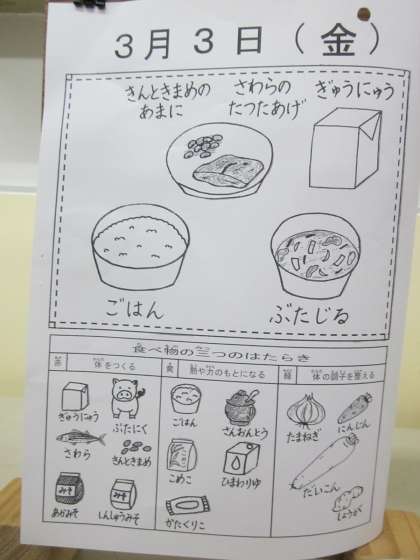 3月3日(金)
きんときまめの
あまに
さわらの
たつたあげ
ぎゅうにゅう
ごはん
ぶたじる
食べ物の三つのはたらき
赤 体をつくる
黄 熱や力のもとになる
緑 体の調子を整える
ぎゅうにゅう
ぶたにく
さわら
きんときまめ
みそ
あかみそ
みそ
しんしゅうみそ
ごはん
さんおんとう
こめこ
ひまわりゆ
かたくりこ
たまねぎ
にんじん
だいこん
しょうが